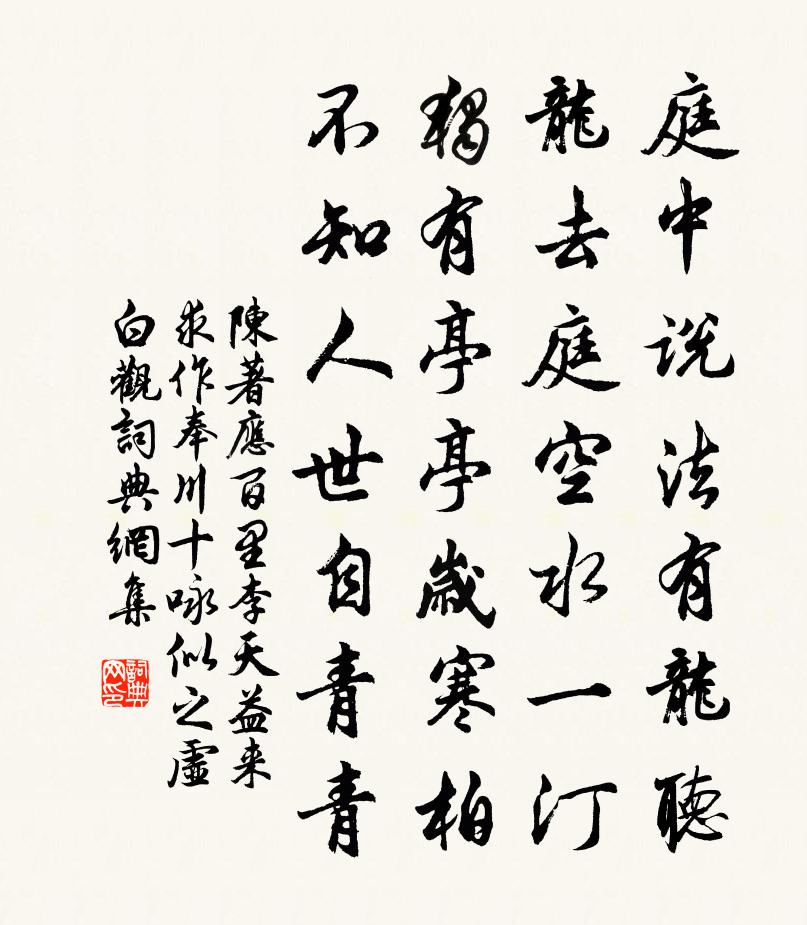 庭中説法有龍聽
龍去庭空水一汀
獨有亭亭歲寒柏
不知人世自青青
陳著應百里李天益来
求作奉川十咏似之虛
白觀詞典網集
詞典网印